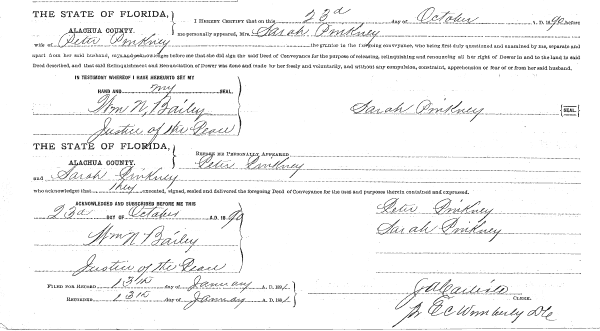 THE STATE OF FLORIDA,
ALACHUA COUNTY.
I HEREBY CERTIFY that on this 23d day of October A. D. 1890 before
me personally appeared, Mrs. Sarah Pinkney
wife of Peter Pinkney the grantor in the foregoing conveyance, who being first duly questioned and examined by me, separate and
apart from her said husband, acknowledges before me that she did sign the said Deed of Conveyance for the purpose of releasing, relinquishing and renouncing all her right of Dower in and to the land in said
Deed described, and that said Relinquishment and Renunciation of Dower was done and made by her freely and voluntarily, and without any compulsion, constraint, apprehension or fear of or from her said husband.
IN TESTIMONY WHEREOF I HAVE HEREUNTO SET MY
HAND AND my SEAL,
Wm N. Bailey
Justice of the Peace
Sarah Pinkney SEAL.
THE STATE OF FLORIDA,
ALACHUA COUNTY.
BEFORE ME PERSONALLY APPEARED Peter Pinkney
and Sarah Pinkney
who acknowledge that they executed, signed, sealed and delivered the foregoing Deed of Conveyance for the uses and purposes therein contained and expressed.
ACKNOWLEDGED AND SUBSCRIBED BEFORE ME THIS
23d DAY OF October A. D. 1890
Wm N Bailey
Justice of the Peace
Peter Pinkney
Sarah Pinkney
FILED FOR RECORD 13th day of January A. D. 1891.
RECORDED 13th day of January A. D. 1891.
J A Carlisle CLERK.
pr E C Wimberly D C